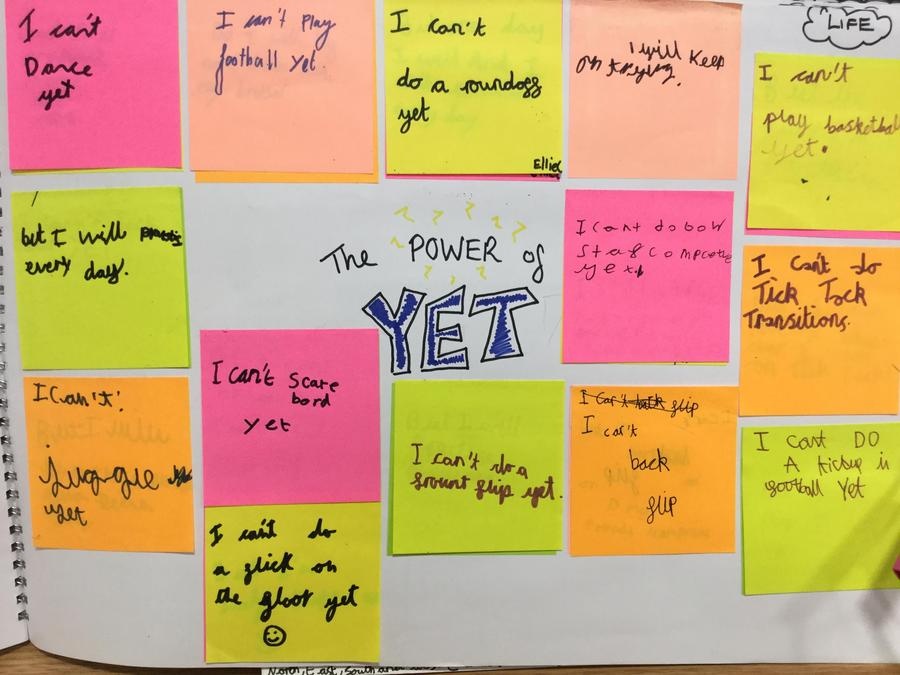 I can't
Dance
yet
I can't Play
football yet.
I can't
do a roundogg
yet
Ellie
I will Keep
on trying.
LIFE
I can't
play basketball
yet.
but I will
every day.
The POWER of
YET
I cant do bow
staf compcete
yet.
I can't do
Tick Tock
Transitions.
I can't
Juggle
yet
I can't Scare
bord
yet
I can't do a
frount flip yet.
I can't back flip
I can't
back
flip
I cant DO
A kickup in
football Yet
I can't do
a flick on
the floor yet